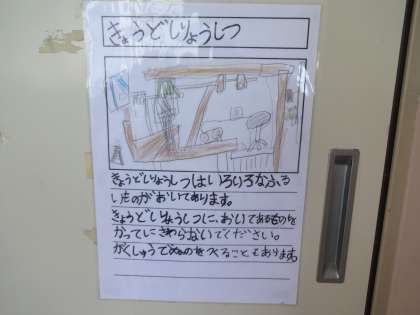 きょうどしりょうしつ
きょうどしりょうしつはいろいろなふる
いものがおいてあります。
きょうどしりょうしつに、おいてあるものを
かってにさわらないでください。
がくしゅうでものをつくることもあります。